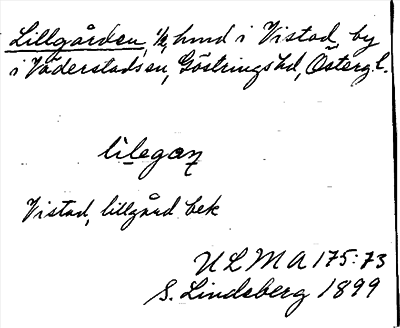 Lillgården, 1/2, hmd i Vistad by
i Väderstads sn, Göstrings hd, Östergl.
lilegaɳ
Vistad, lillgård bek
ULMA 175:73
S. Lindsberg 1899